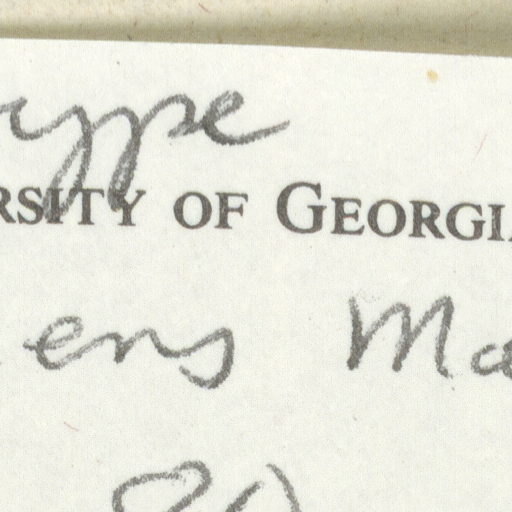 ype
RSITY OF GEORGI
ens Ma